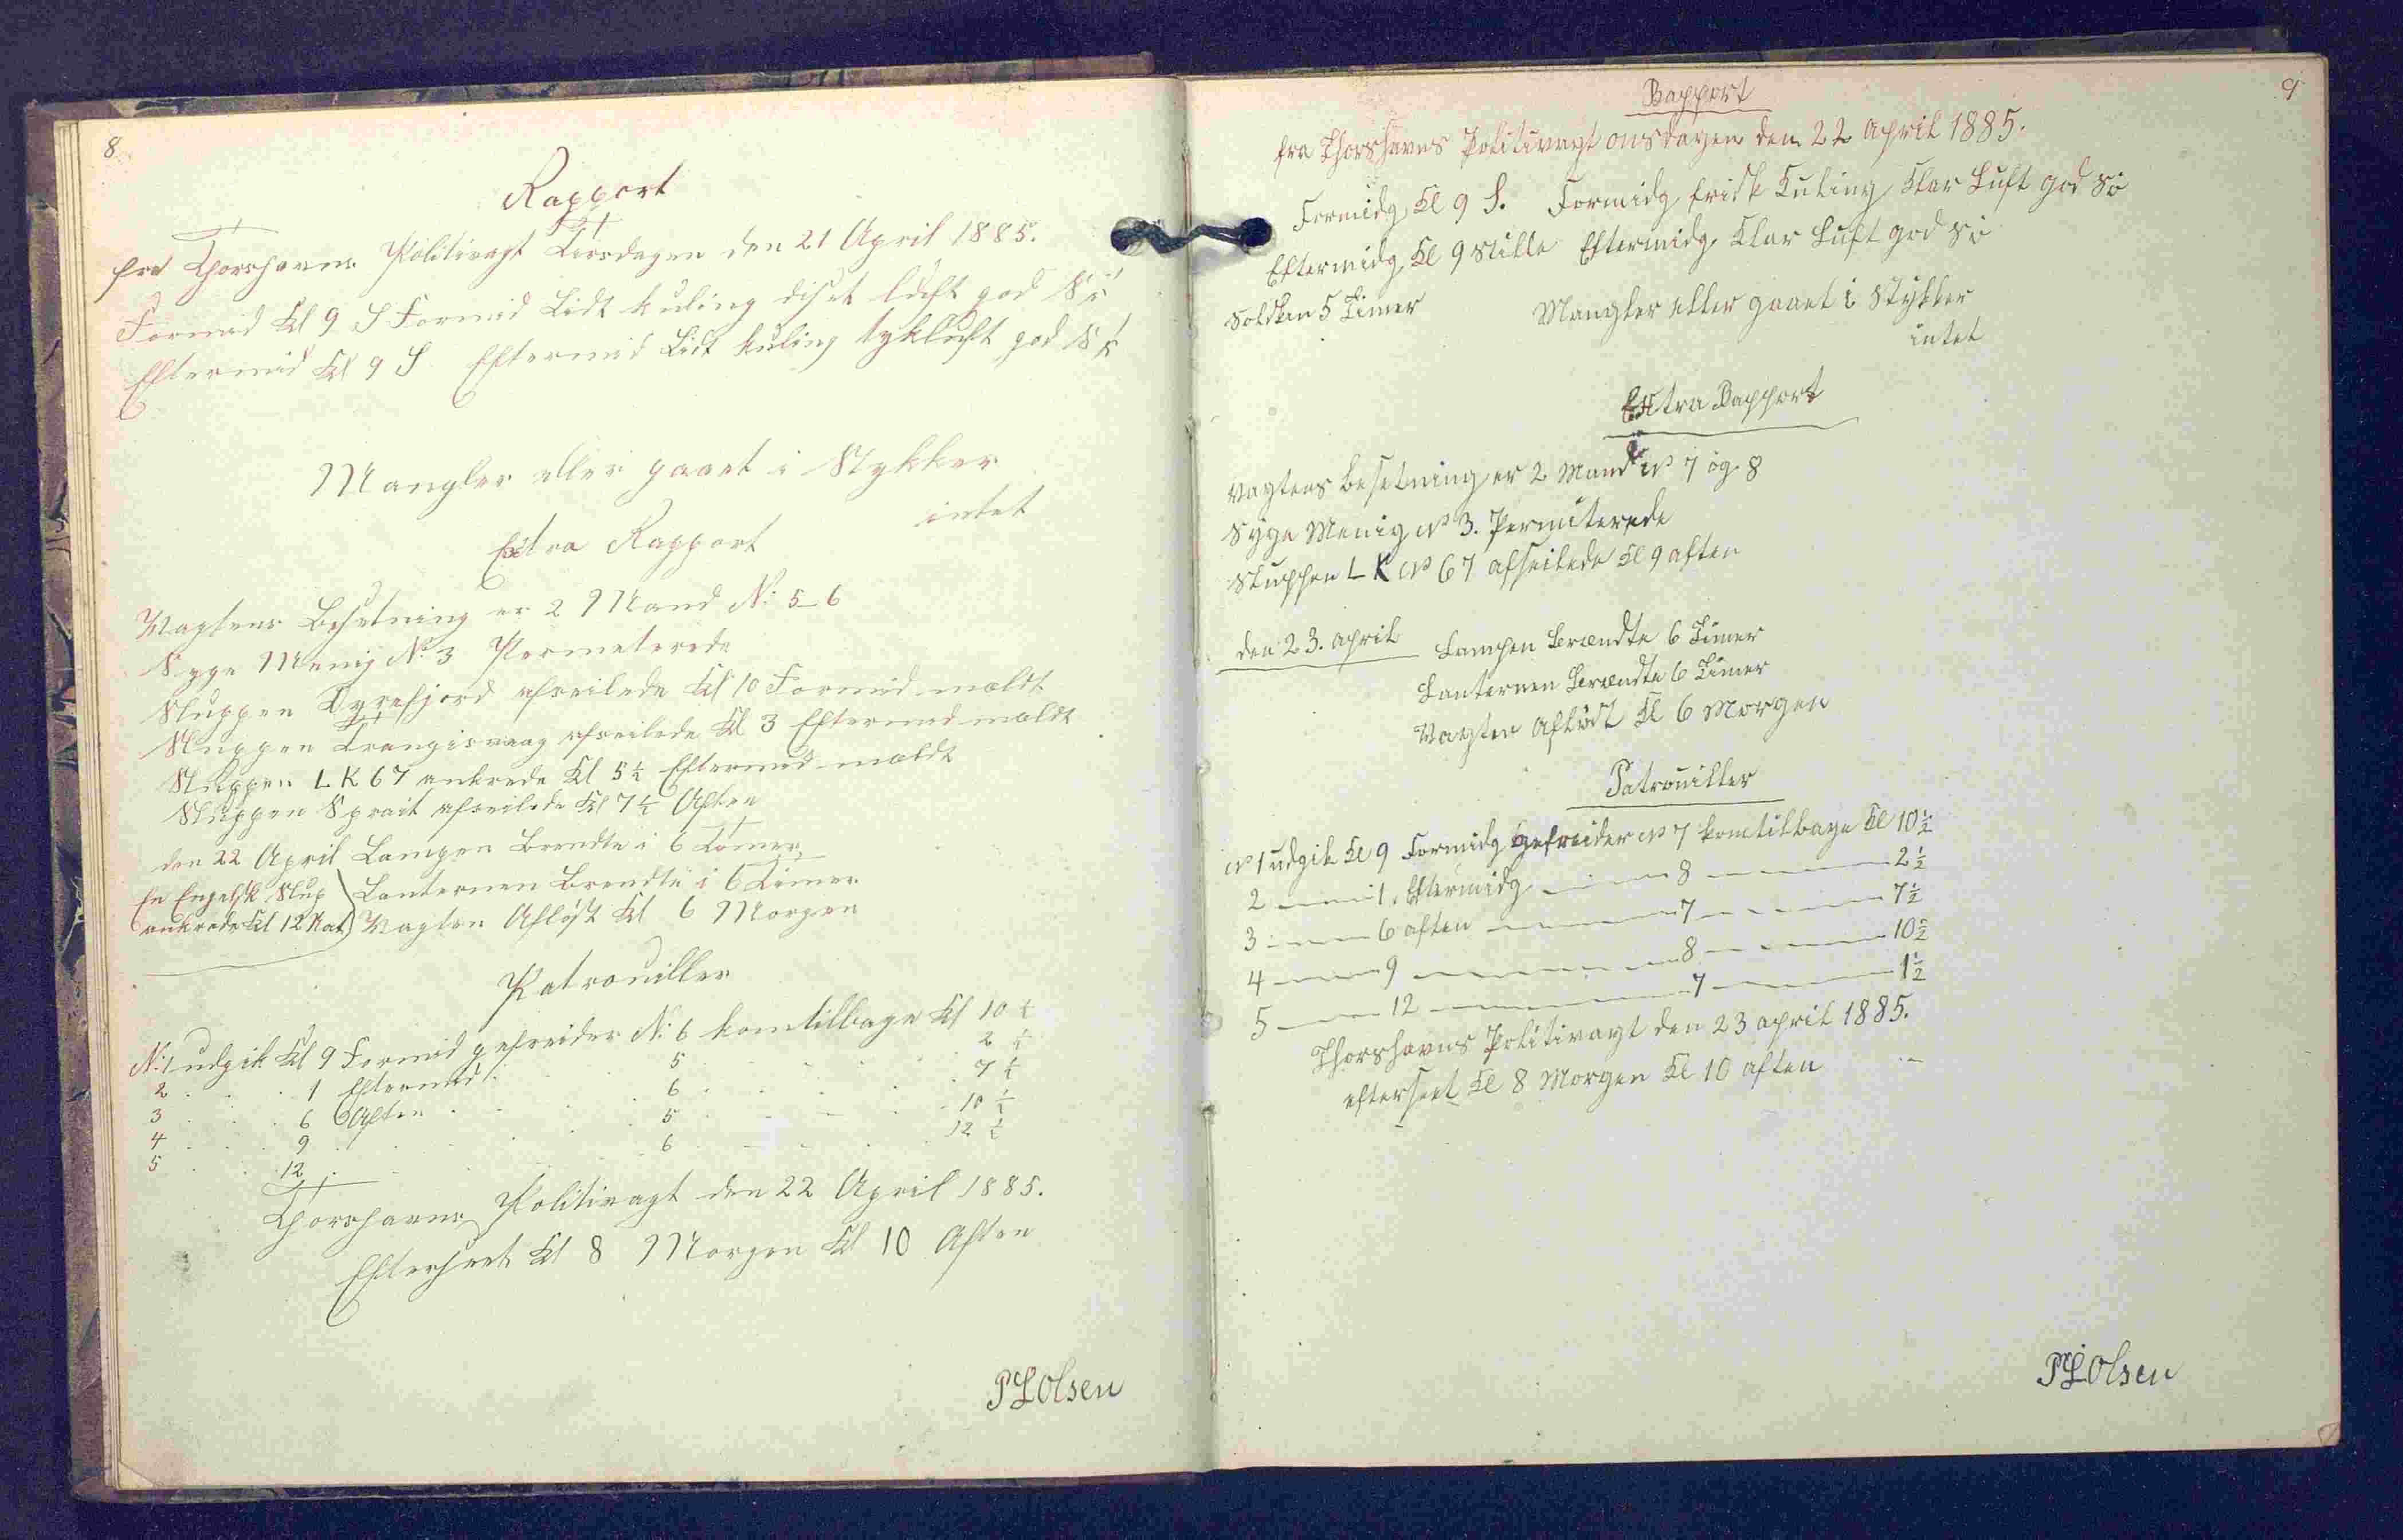 8
Rapport
fra Thorshavns Politivagt Tirsdagen den 21 April 1885.
Formid Kl 9 S Formid Lidt kuling diset luft god Sø
Eftermid Kl 9 S Eftermid Lidt kuling tykluft god Sø
Mangler eller gaaet i Stykker
intet
Extra Rapport
Vagtens Besetning er 2 Mand No 5-6
Syge Menig No 3 Permeterede
Sluppen Dyrefjord afseilede Kl 10 Formid mældt
Sluppen Trangisvaag afseilede Kl 3 Eftermid mældt
Sluppen LK 67 ankrede Kl 5½ Eftermid mældt
Sluppen Sprait afseilede Kl 7½ Aften
den 22 April Lampen Brendte i 6 Timer
En Engelsk Slup Lanternen Brendte i 6 Timer
ankrede Kl 12 Nat Vagten Afløst Kl 6 Morgen
Patrouiller
No 1 udgik Kl 9 Formid gefreider No 6 kom tilbage Kl 10½
2 . . . 1 Eftermid . . . 5 . . . 2½
3 . . . 6 Aften . . . 6 . . . 7½
4 . . . 9 . . . 5 . . . 10½
5 . . . 12 . . . 6 . . . 12½
Thorshavns Politivagt den 22 April 1885.
Efterseet Kl 8 Morgen Kl 10 Aften
PLOlsen
9
Rapport
fra Thorshavns Politivagt onsdagen den 22 April 1885.
Formidg Kl 9 S. Formidg frisk Kuling Klar Luft god Sø
Eftermidg Kl 9 Stille Eftermidg Klar Luft god Sø
Solskin 5 Timer Mangler eller gaaet i Stykker
intet
Extra Rapport
Vagtens Besetning er 2 Mand No 7 og 8
Syge Menig No 3. Permiterede
Sluppen LK No 67 afseilede Kl 9 aften
den 23. april Lampen Brændte 6 Timer
Lanternen Brændte 6 Timer
Vagten Afløst Kl 6 Morgen
Patrouiller
No 1 udgik Kl 9 Formidg Gefreider No 7 kom tilbage Kl 10½
2 — 1. Eftermidg — 8 — 2½
3 — 6 aften — 7 — 7½
4 — 9 — 8 — 10½
5 — 12 — 7 — 1½
Thorshavns Politivagt den 23 april 1885.
efterseet Kl 8 Morgen Kl 10 aften
PLOlsen